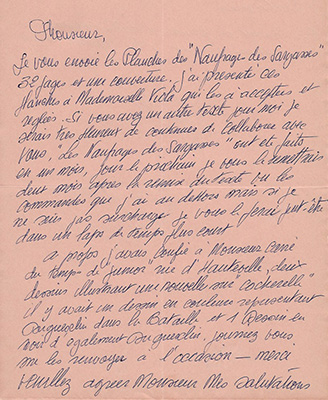 Monsieur,
Je vous envoie les Planches des "Naufragés des Sargasses"
32 pages et une couverture. J'ai présenté ces
planches à Mademoiselle qui les a acceptées et
réglées. Si vous avez un autre texte pour moi je
serais très heureux de continuer à collaborer avec
vous, "Les Naufragés des Sargasses" ont été faits
en un mois, pour le prochain je vous le remettrais
deux mois après la remise du texte vu les
commandes que j'ai au dehors mais si je
ne suis pas surchargé je vous le ferai peut-être
dans un laps de temps plus court
à propos j'avais confié à Monsieur
du temps de Junior rue d'Hauteville, deux
dessins illustrant une nouvelle
il y avait un dessin en couleurs représentant
Duguesclin dans la Bataille et 1 dessin en
noir également Duguesclin, pourriez vous
me les renvoyer à l'occasion – merci
Veuillez agréer Monsieur mes salutations